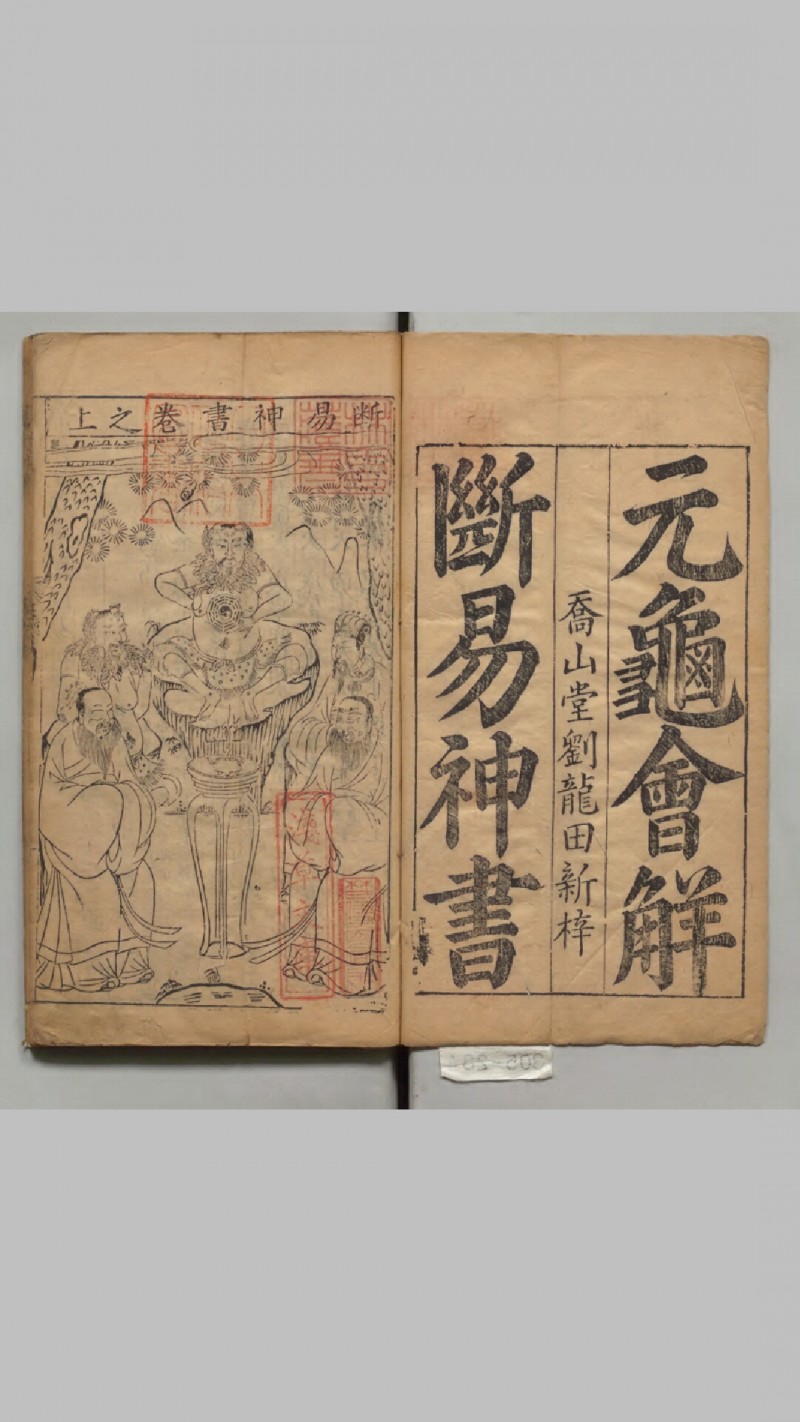 元龜會解
喬山堂劉龍田新梓
斷易神書
断易神書卷之上